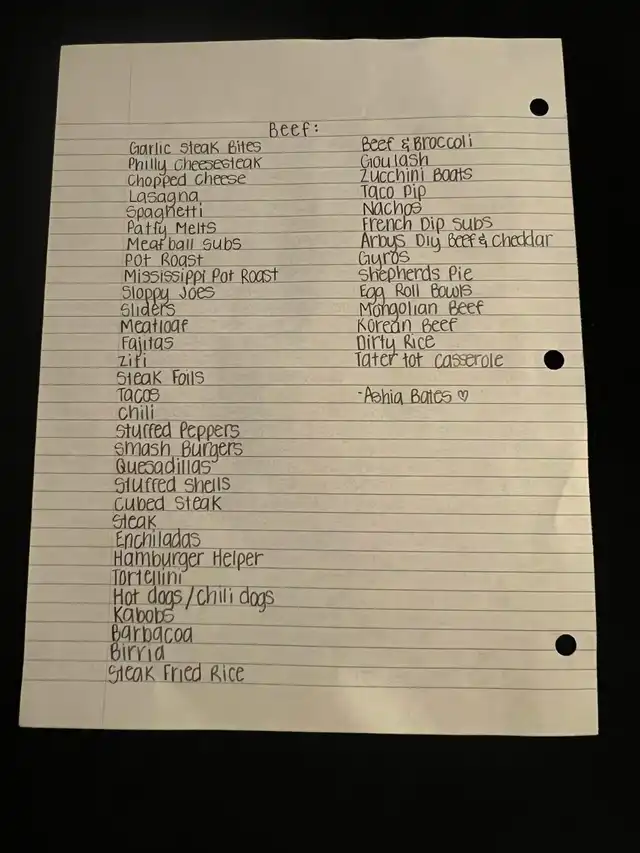 Beef:
Garlic Steak Bites
Philly Cheesesteak
Chopped Cheese
Lasagna
Spaghetti
Patty Melts
Meatball Subs
Pot Roast
Mississippi Pot Roast
Sloppy Joes
Sliders
Meatloaf
Fajitas
Ziti
Steak Foils
Tacos
Chili
Stuffed Peppers
Smash Burgers
Quesadillas
Stuffed Shells
Cubed Steak
Steak
Enchiladas
Hamburger Helper
Tortellini
Hot dogs/chili dogs
Kabobs
Barbacoa
Birria
Steak Fried Rice
Beef & Broccoli
Goulash
Zucchini Boats
Taco Dip
Nachos
French Dip Subs
Arbys Diy Beef & Cheddar
Gyros
Shepherds Pie
Egg Roll Bowls
Mongolian Beef
Korean Beef
Dirty Rice
Tater tot casserole
-Ashia Bates ♡